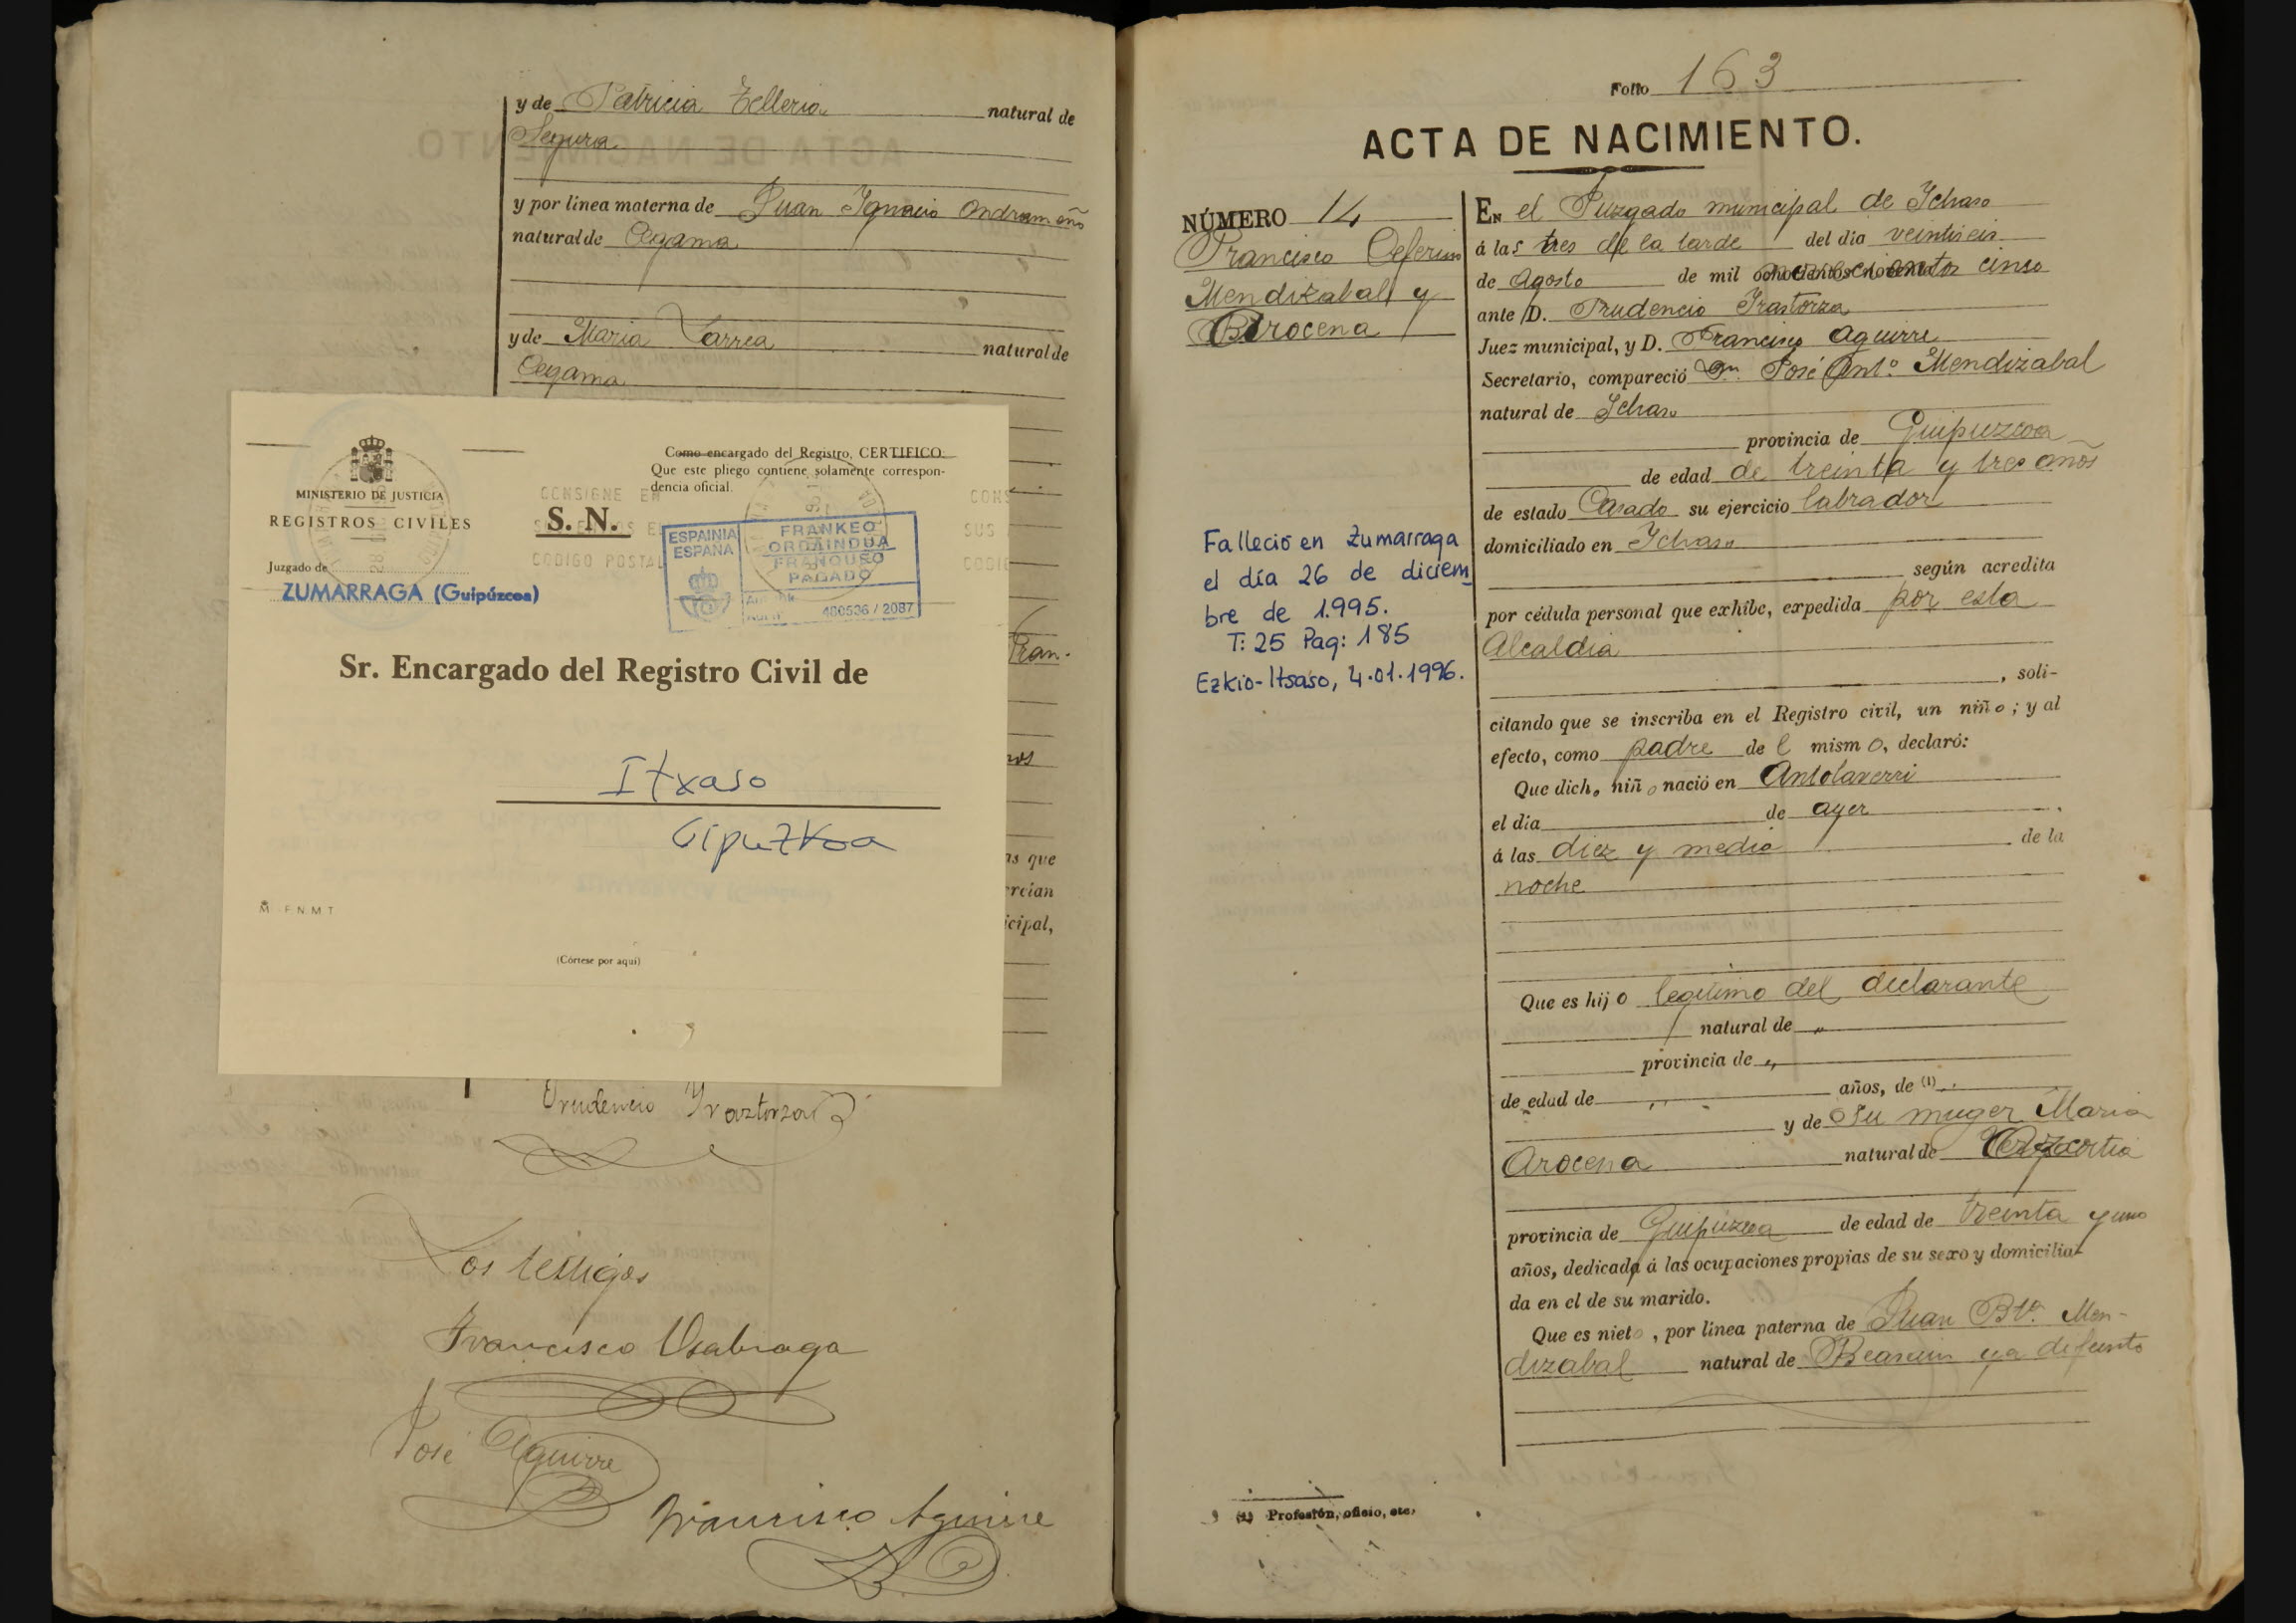 y de Patricia Telleria natural de
Segura
y por línea materna de Juan Ignacio Ondramuño
natural de Cegama
y de Maria Larrea natural de
Cegama
MINISTERIO DE JUSTICIA
REGISTROS CIVILES
Juzgado de
ZUMARRAGA (Guipúzcoa)
Como encargado del Registro, CERTIFICO:
Que este pliego contiene solamente correspon-
dencia oficial.
S. N.
CONSIGNE EN
CODIGO POSTAL
CONS
SUS
CODIG
ESPAINIA
ESPAÑA
FRANKEO
ORDAINDUA
FRANQUEO
PAGADO
480536 / 2087
Sr. Encargado del Registro Civil de
Itxaso
Gipuzkoa
F N M T
(Córtese por aquí)
Fran-
as que
rcian
icipal,
Prudencio Yraztorza
Los testigos
Francisco Usabiaga
José Aguirre
Francisco Aguirre
Folio 163
ACTA DE NACIMIENTO.
NÚMERO 14
Francisco Ceferino
Mendizabal y
Arocena
Fallecio en Zumarraga
el día 26 de diciem
bre de 1.995.
T: 25 Pag: 185
Ezkio-Itsaso, 4.01.1996.
EN el Juzgado municipal de Ichaso
á las tres de la tarde del dia veintiseis
de Agosto de mil novecientos cinco
ante D. Prudencio Irastorza
Juez municipal, y D. Francisco Aguirre
Secretario, compareció Dn. José Antº. Mendizabal
natural de Ichaso
provincia de Guipuzcoa
de edad de treinta y tres años
de estado Casado su ejercicio labrador
domiciliado en Ichaso
según acredita
por cédula personal que exhibe, expedida por esta
Alcaldia
, soli-
citando que se inscriba en el Registro civil, un niño; y al
efecto, como padre de l mismo, declaró:
Que dicho niño nació en Antolaverri
el dia de ayer
á las diez y media de la
noche
Que es hijo legitimo del declarante
natural de „
provincia de „
de edad de „ años, de (1) „
y de su muger Maria
Arocena natural de
provincia de Guipúzcoa de edad de treinta y uno
años, dedicada á las ocupaciones propias de su sexo y domicilia-
da en el de su marido.
Que es nieto, por línea paterna de Juan Bta. Men-
dizabal natural de Beasain ya difunto
(1) Profesión, oficio, etc.